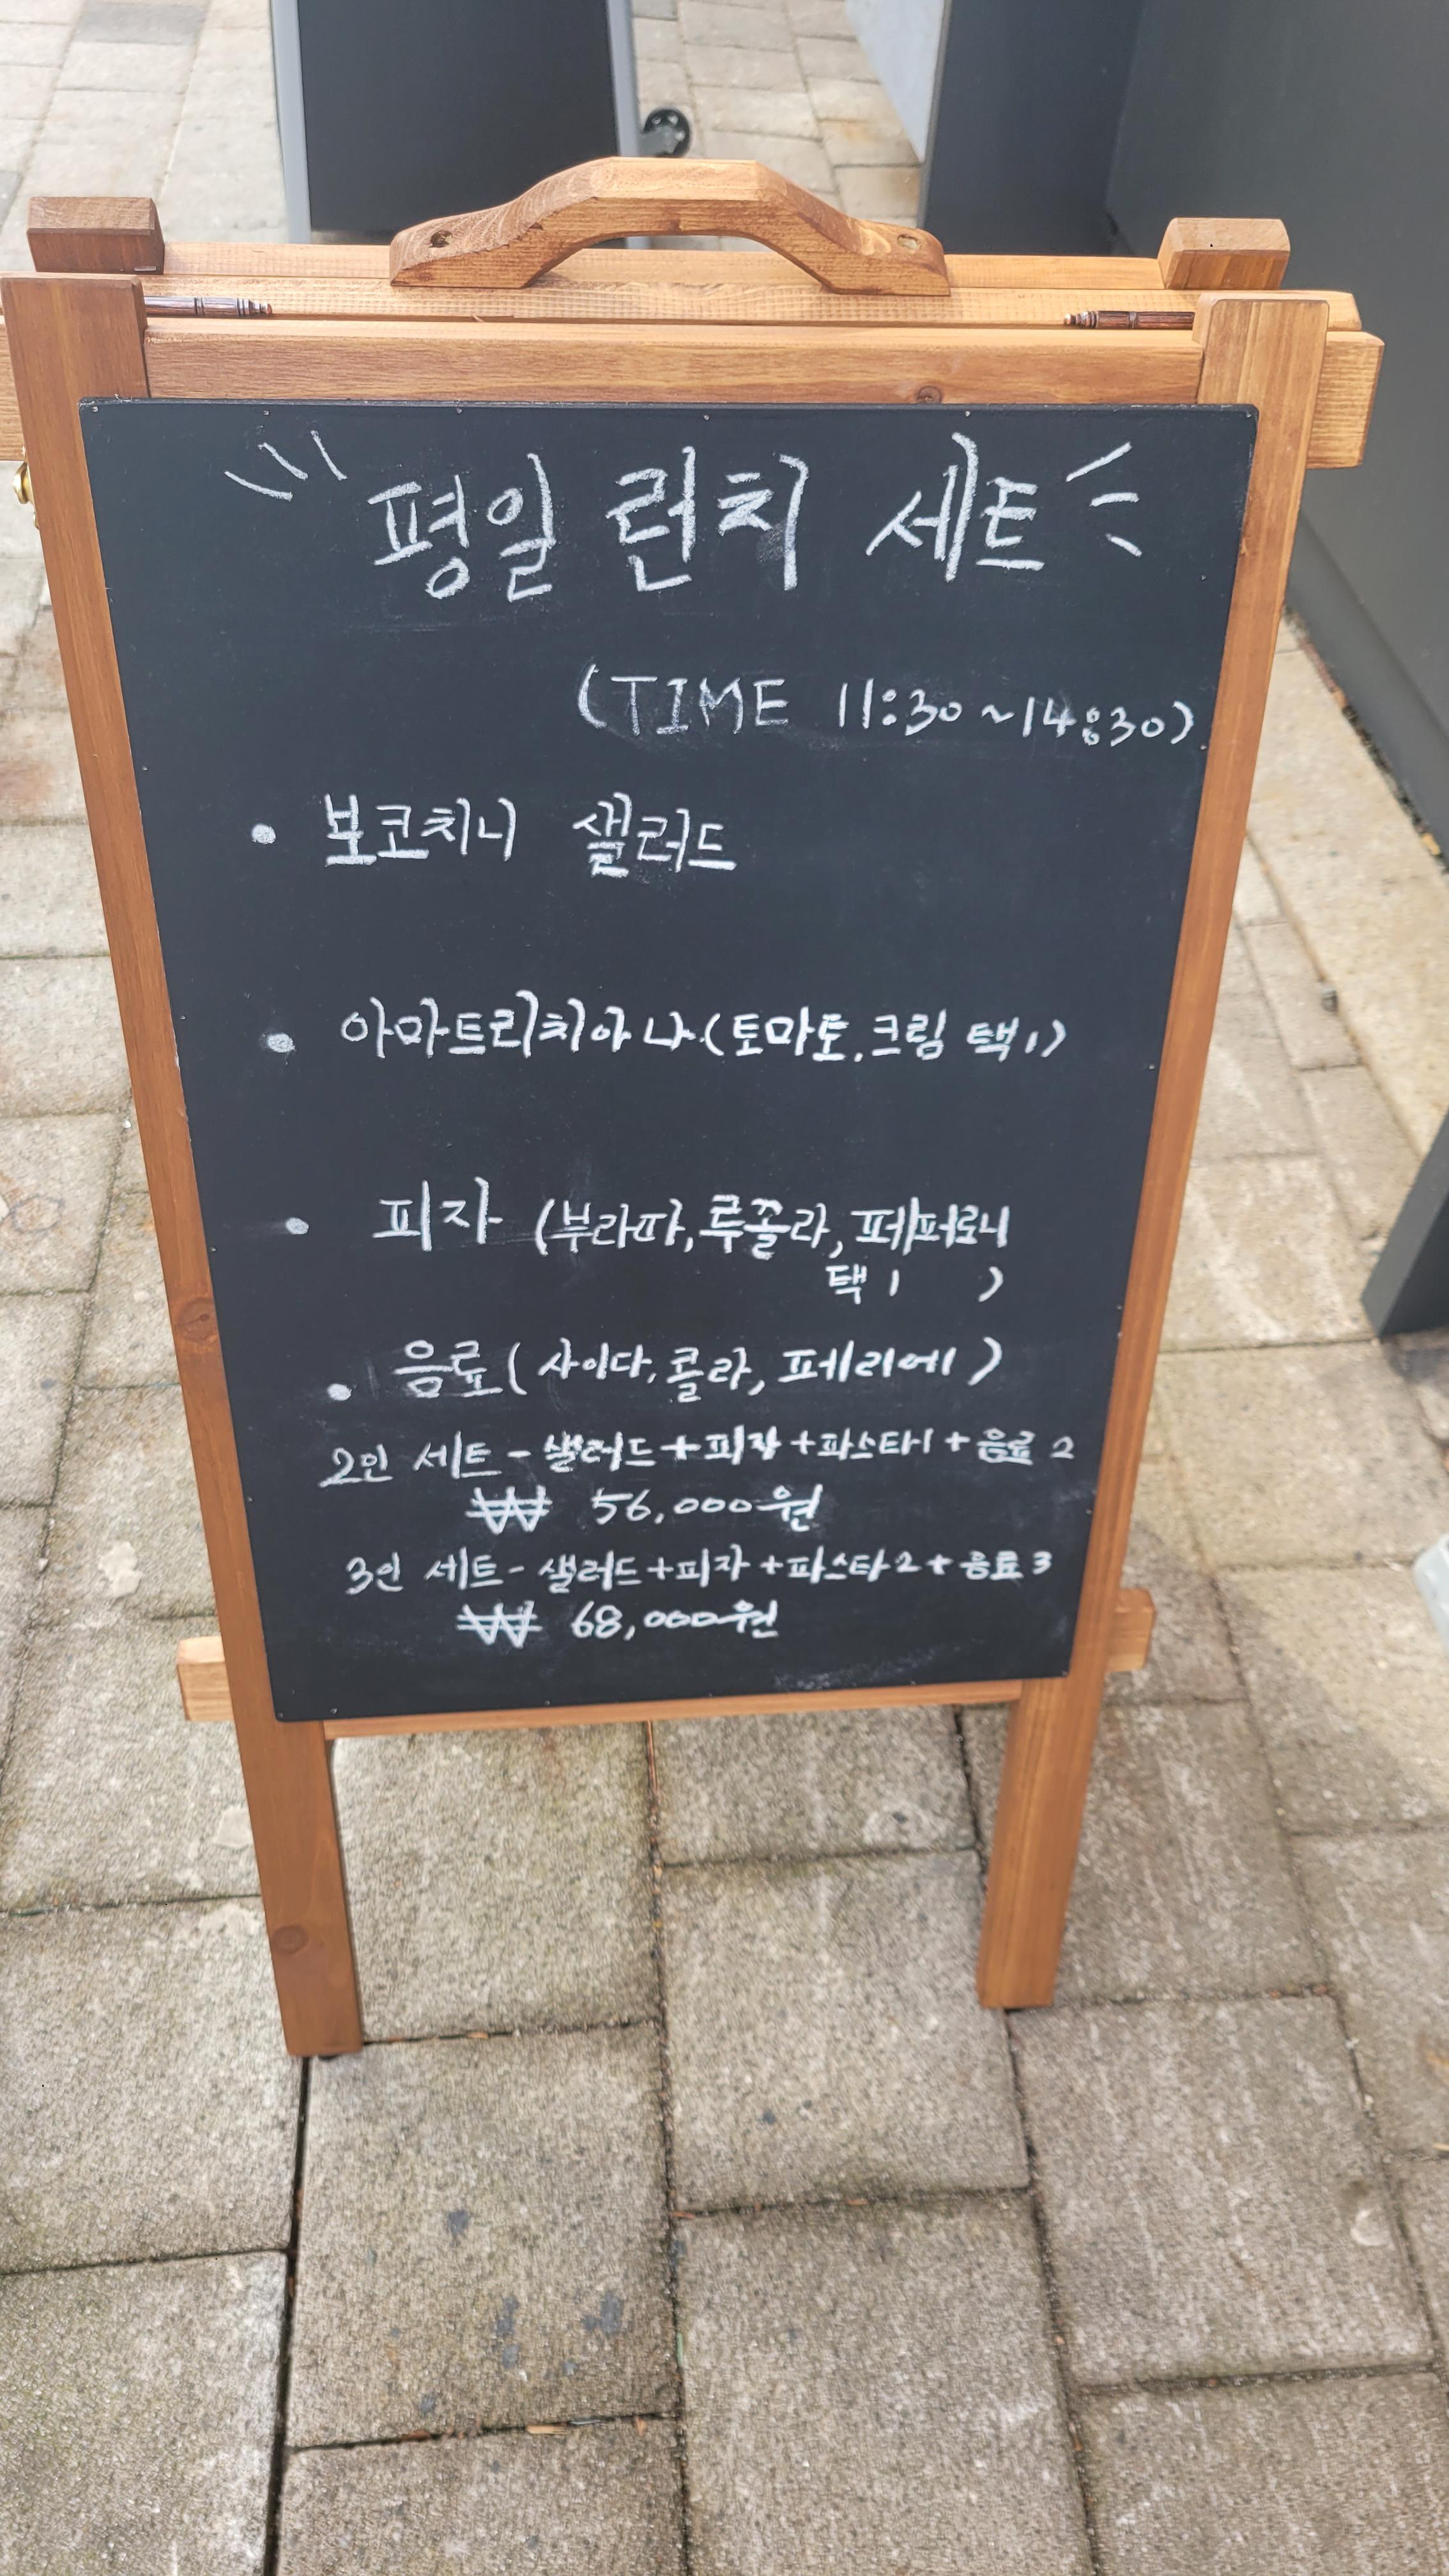 평일 런치 세트
(TIME 11:30 ~14:30)
• 보코치니 샐러드
• 아마트리치아나 (토마토, 크림 택1)
• 피자 (부라따, 루꼴라, 페퍼로니
택1 )
• 음료 (사이다, 콜라, 페리에)
2인 세트 - 샐러드+피자+파스타1+음료2
₩₩ 56,000원
3인 세트 - 샐러드+피자+파스타2+음료3
₩₩ 68,000원